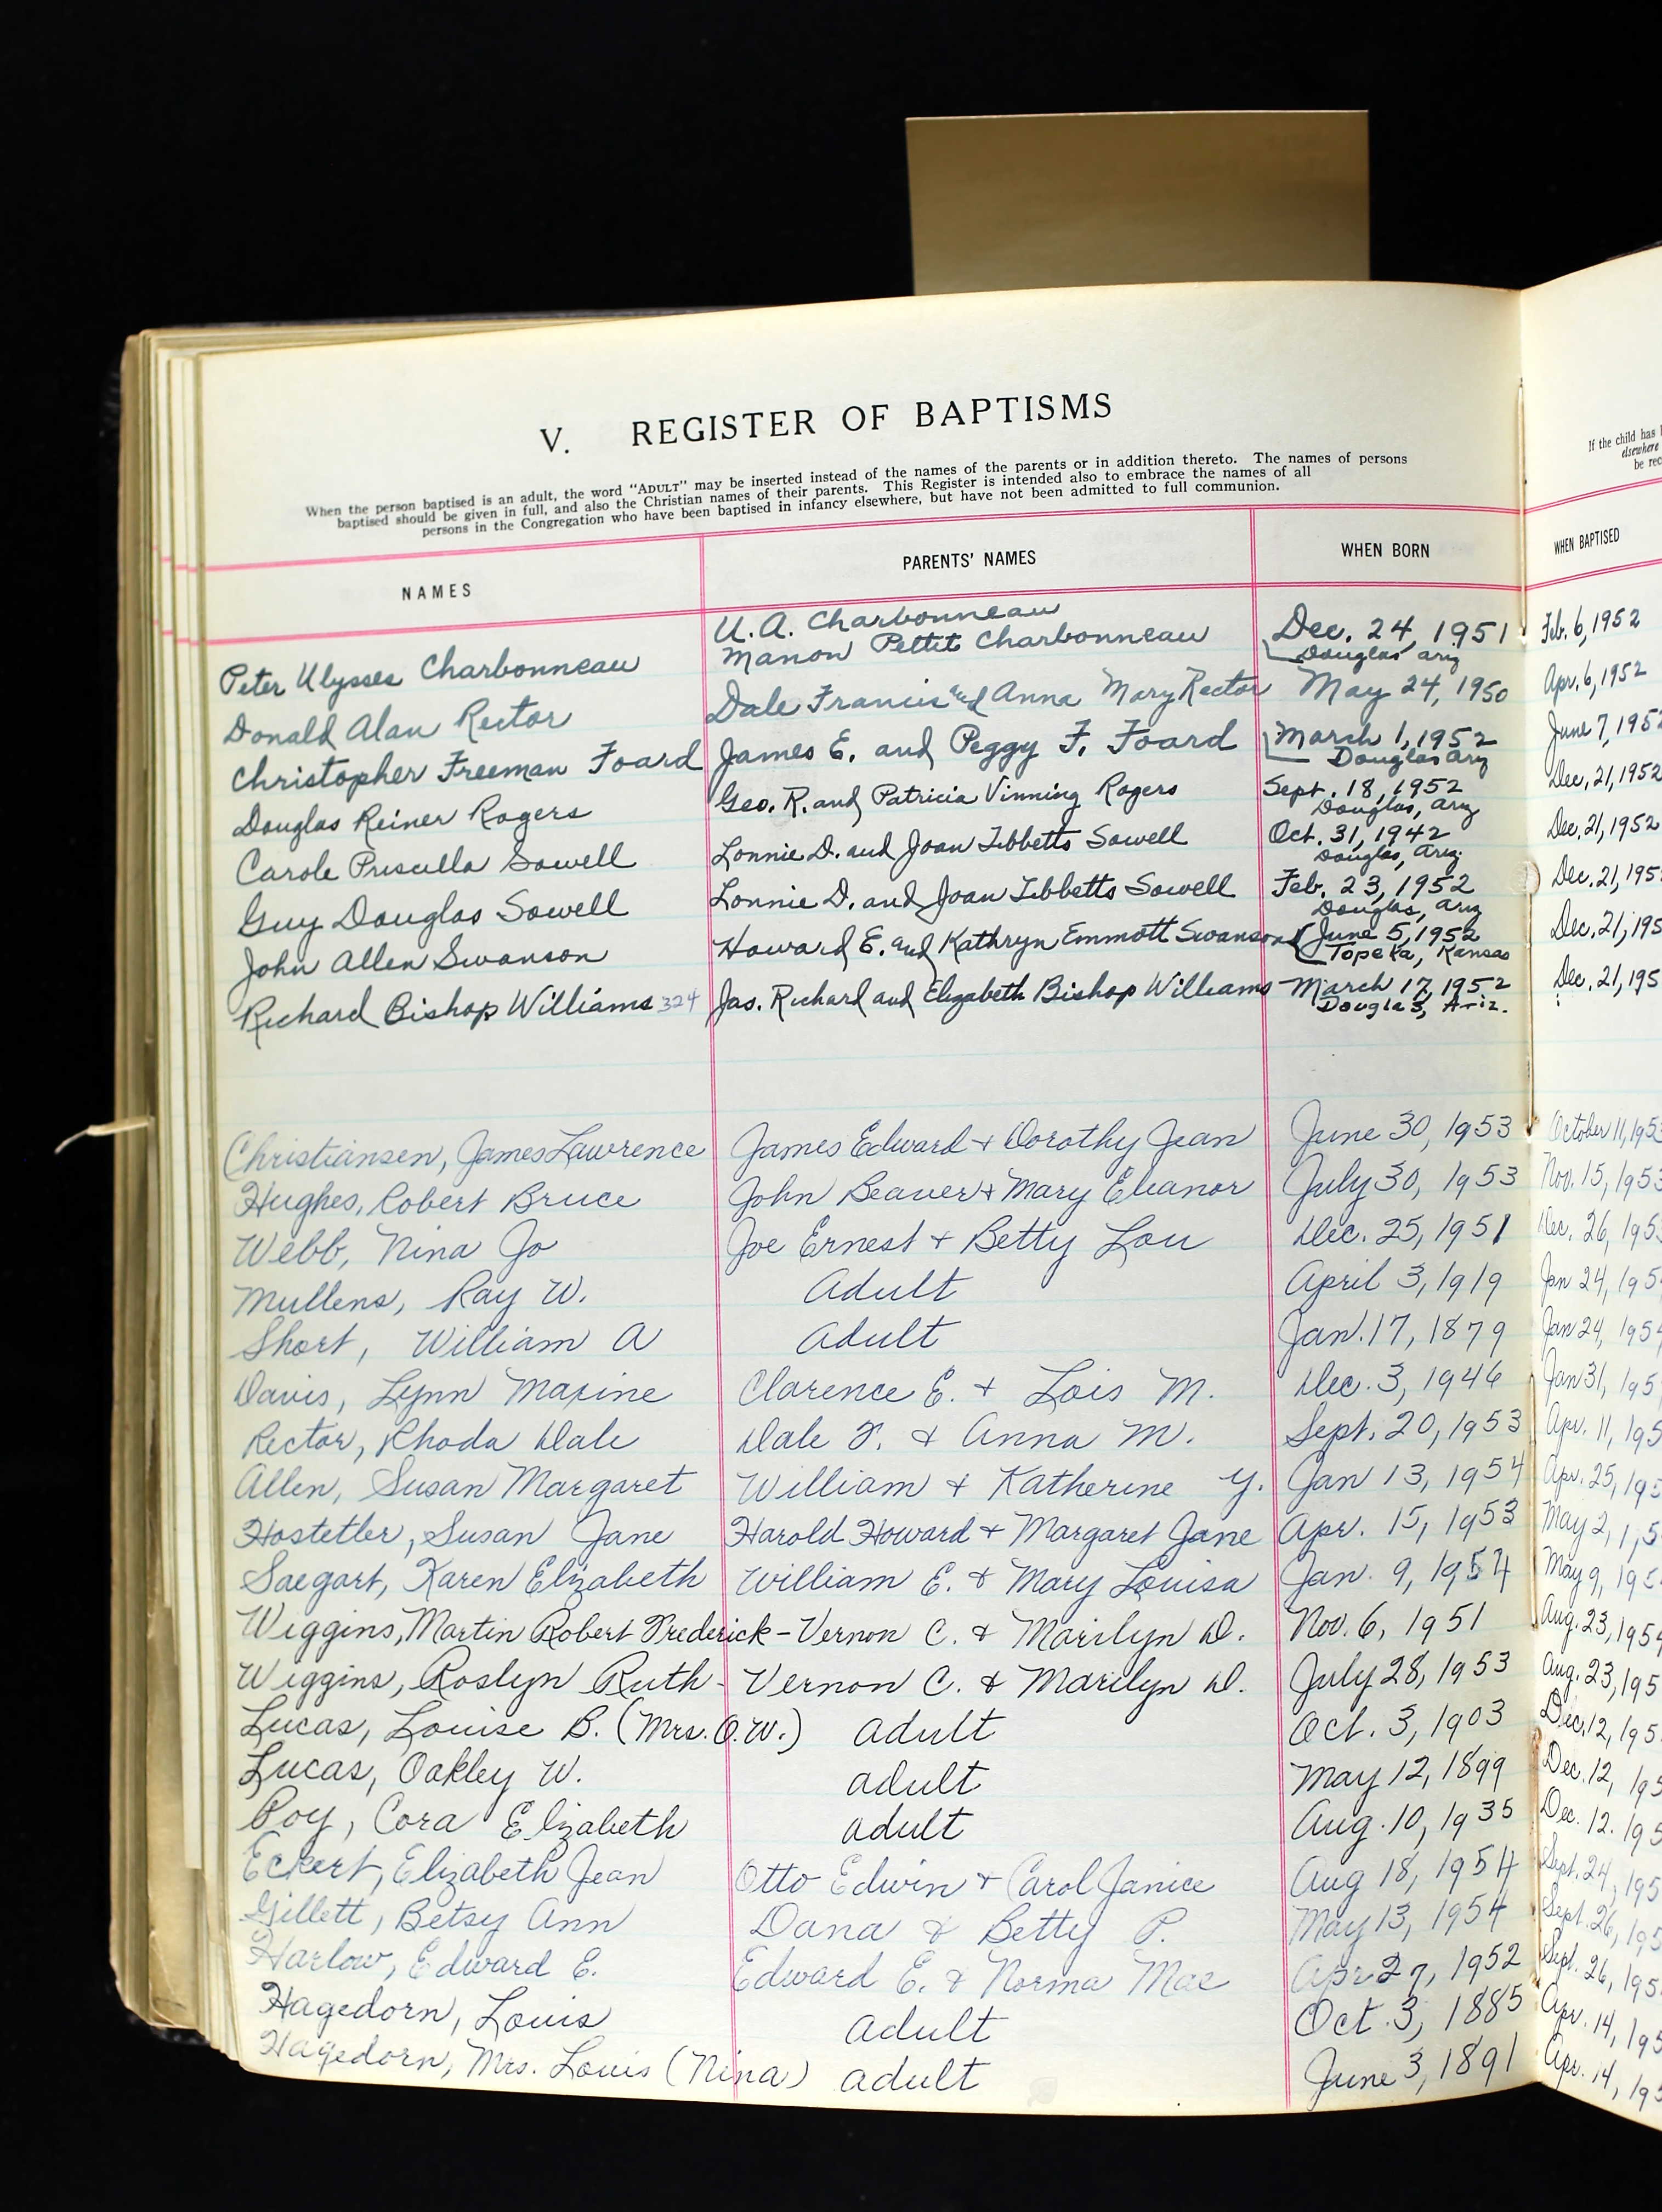 V. REGISTER OF BAPTISMS
When the person baptised is an adult, the word "ADULT" may be inserted instead of the names of the parents or in addition thereto. The names of persons
baptised should be given in full, and also the Christian names of their parents. This Register is intended also to embrace the names of all
persons in the Congregation who have been baptised in infancy elsewhere, but have not been admitted to full communion.
If the child has
elsewhere
be rec
NAMES PARENTS' NAMES WHEN BORN WHEN BAPTISED
U. A. Charbonneau
Peter Ulysses Charbonneau Manon Pettit Charbonneau Dec. 24, 1951 Feb. 6, 1952
Douglas Ariz
Donald Alan Rector Dale Francis and Anna Mary Rector May 24, 1950 Apr. 6, 1952
Christopher Freeman Foard James E. and Peggy F. Foard March 1, 1952 June 7, 195
Douglas Ariz
Douglas Reiner Rogers Geo. R. and Patricia Vinning Rogers Sept. 18, 1952 Dec. 21, 1952
Douglas, Ariz
Carole Priscilla Sowell Lonnie D. and Joan Tibbetts Sowell Oct. 31, 1942 Dec. 21, 1952
Douglas, Ariz.
Guy Douglas Sowell Lonnie D. and Joan Tibbetts Sowell Feb. 23, 1952 Dec. 21, 195
Douglas, Ariz
John Allen Swanson Howard E. and Kathryn Emmott Swanson June 5, 1952 Dec. 21, 195
Topeka, Kansas
Richard Bishop Williams 324 Jas. Richard and Elizabeth Bishop Williams March 17, 1952 Dec. 21, 195
Douglas, Ariz.
Christiansen, James Lawrence James Edward + Dorothy Jean June 30, 1953 October 11, 195
Hughes, Robert Bruce John Beaver + Mary Eleanor July 30, 1953 Nov. 15, 1953
Webb, Nina Jo Joe Ernest + Betty Lou Dec. 25, 1951 Dec. 26, 195
Mullens, Ray W. Adult April 3, 1919 Jan 24, 195
Short, William A Adult Jan. 17, 1879 Jan 24, 1954
Davis, Lynn Maxine Clarence E. + Lois M. Dec. 3, 1946 Jan 31, 195
Rector, Rhoda Dale Dale F. & Anna M. Sept. 20, 1953 Apr. 11, 195
Allen, Susan Margaret William + Katherine Y. Jan 13, 1954 Apr. 25, 195
Hostetler, Susan Jane Harold Howard + Margaret Jane Apr. 15, 1953 May 2, 1,5
Saegart, Karen Elizabeth William E. & Mary Louisa Jan. 9, 1954 May 9, 195
Wiggins, Martin Robert Frederick - Vernon C. & Marilyn D. Nov. 6, 1951 Aug. 23, 1954
Wiggins, Roslyn Ruth - Vernon C. & Marilyn D. July 28, 1953 Aug. 23, 195
Lucas, Louise B. (Mrs. O.W.) adult Oct. 3, 1903 Dec. 12, 195
Lucas, Oakley W. adult May 12, 1899 Dec. 12, 195
Roy, Cora Elizabeth adult Aug. 10, 1935 Dec. 12. 195
Eckert, Elizabeth Jean Otto Edwin + Carol Janice Aug 18, 1954 Sept. 24, 195
Gillett, Betsy Ann Dana & Betty P. May 13, 1954 Sept. 26, 195
Harlow, Edward E. Edward E. & Norma Mae Apr 27, 1952 Sept. 26, 195
Hagedorn, Louis adult Oct. 3, 1885 Apr. 14, 195
Hagedorn, Mrs. Louis (Nina) adult June 3, 1891 Apr. 14, 195